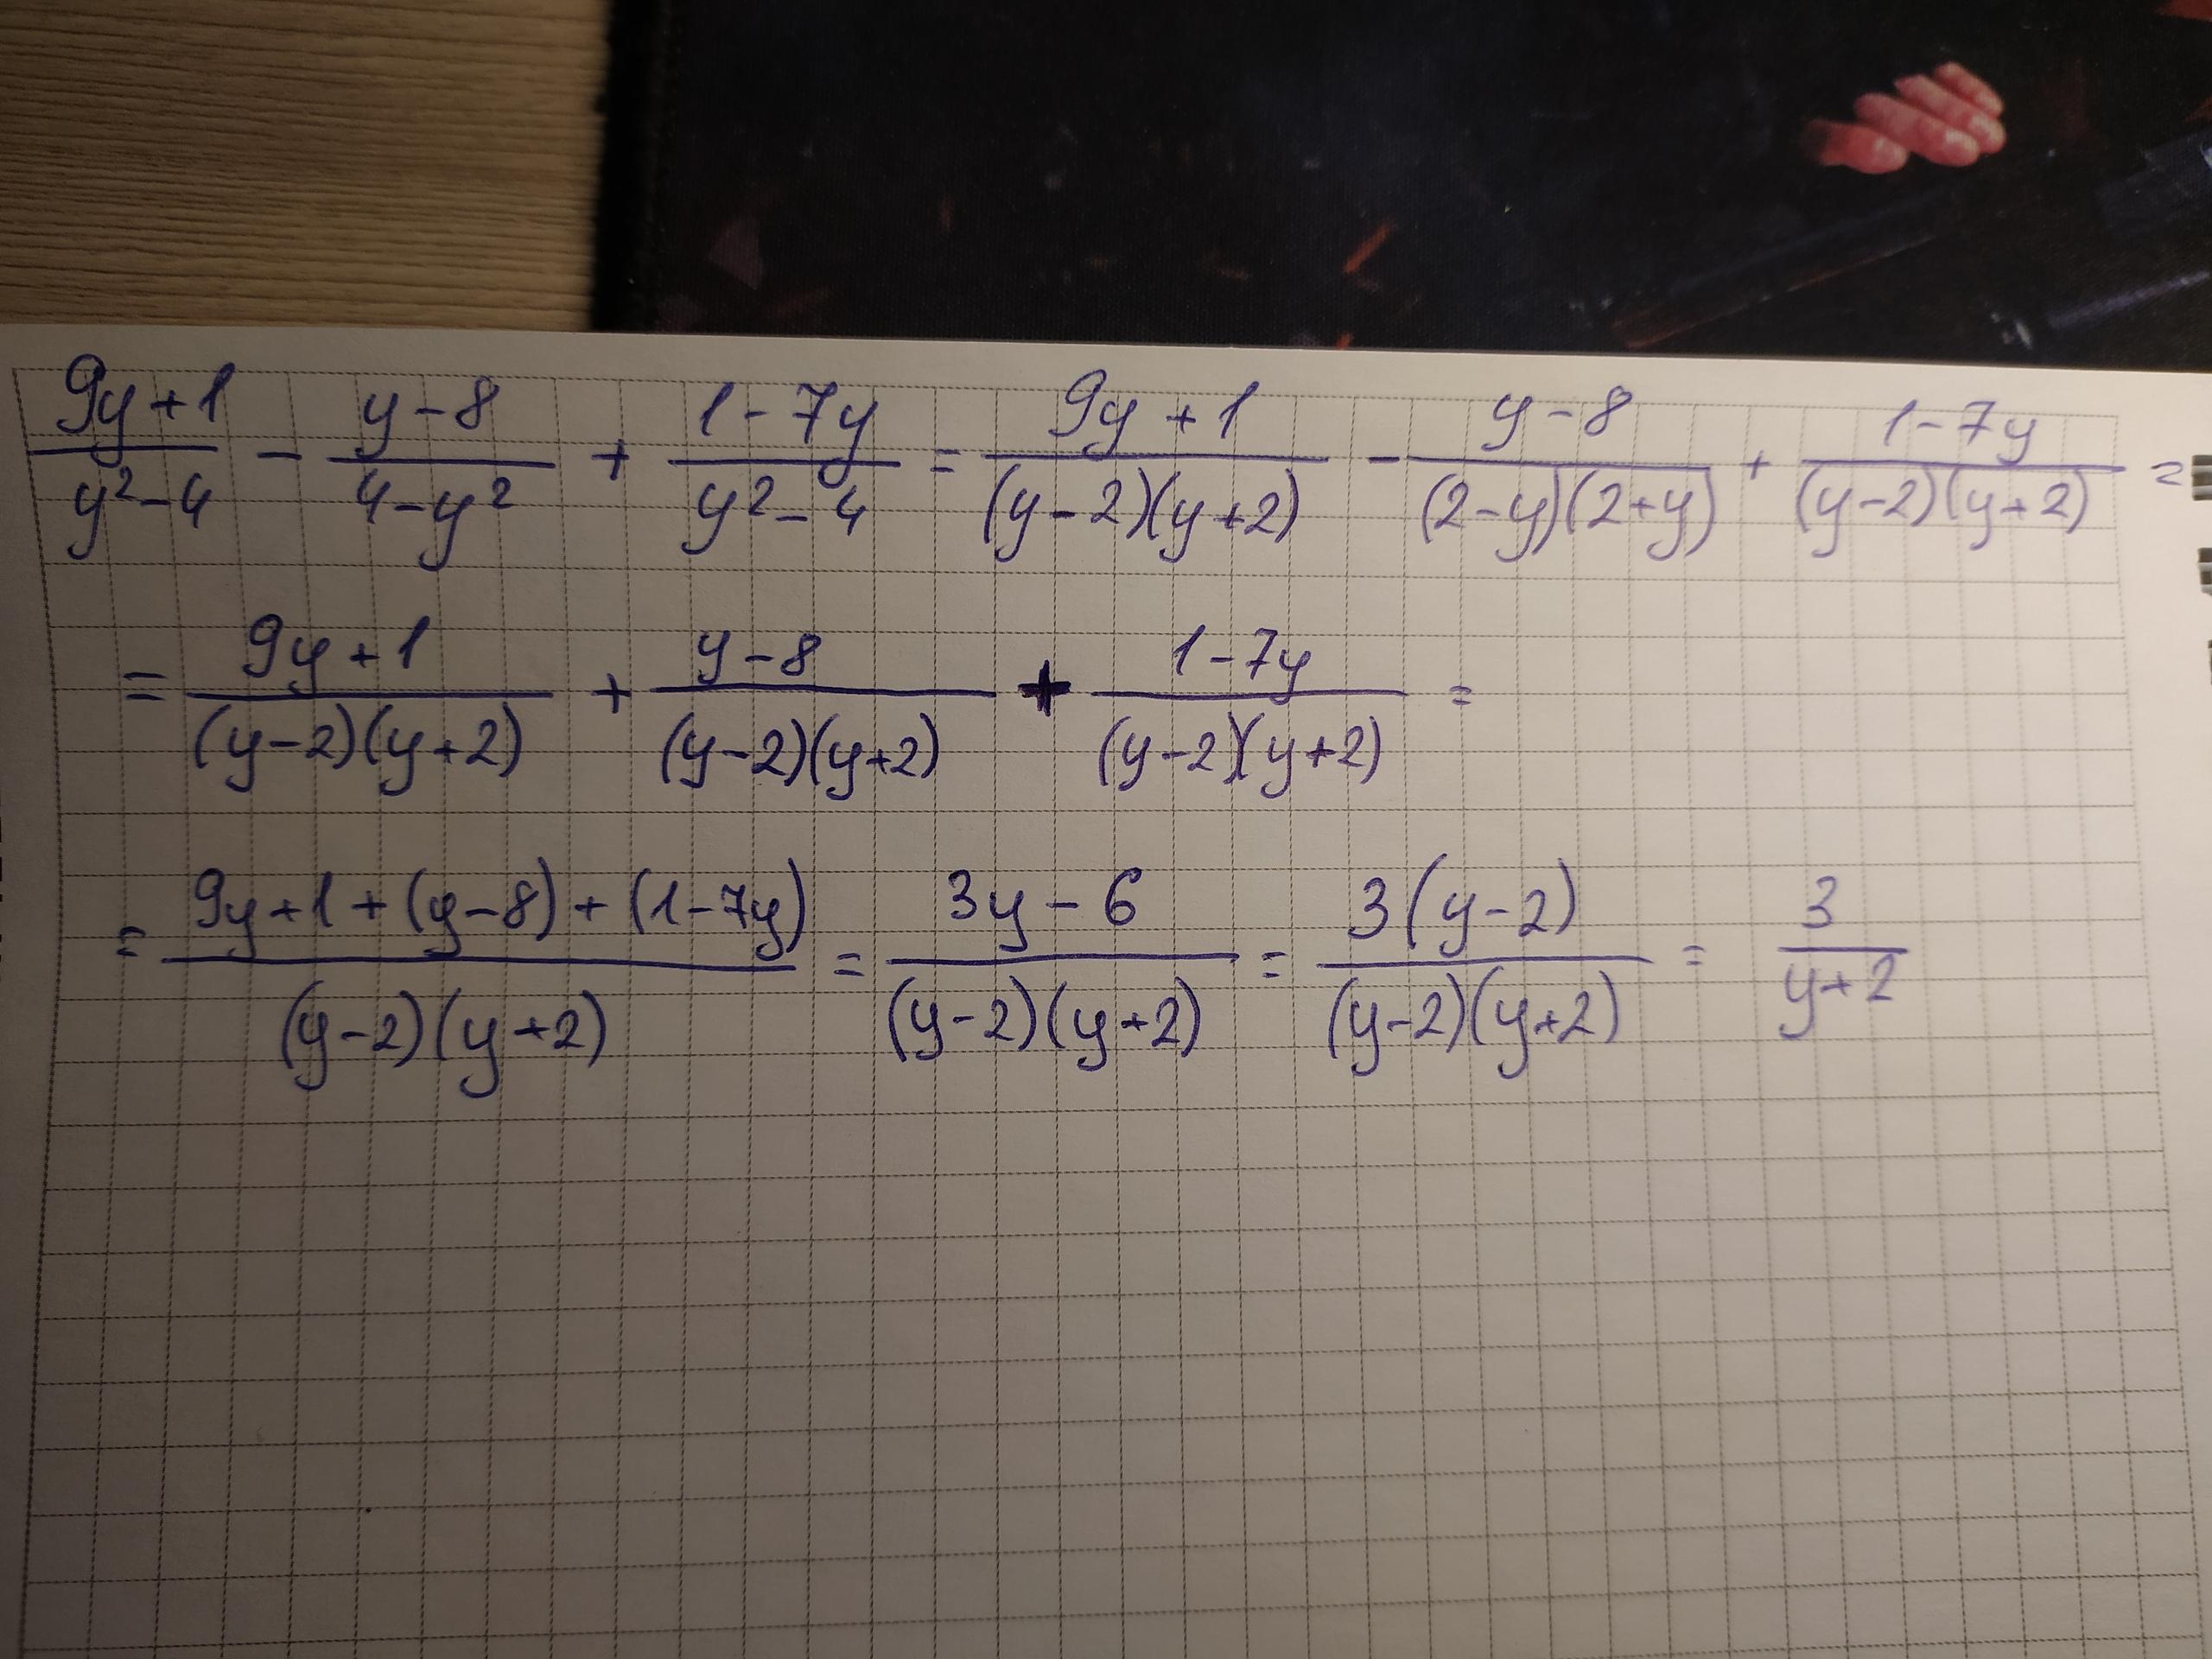 (9y+1)/(y²-4) - (y-8)/(4-y²) + (1-7y)/(y²-4) = (9y+1)/((y-2)(y+2)) - (y-8)/((2-y)(2+y)) + (1-7y)/((y-2)(y+2)) =
= (9y+1)/((y-2)(y+2)) + (y-8)/((y-2)(y+2)) + (1-7y)/((y-2)(y+2)) =
= (9y+1+(y-8)+(1-7y))/((y-2)(y+2)) = (3y-6)/((y-2)(y+2)) = (3(y-2))/((y-2)(y+2)) = 3/(y+2)